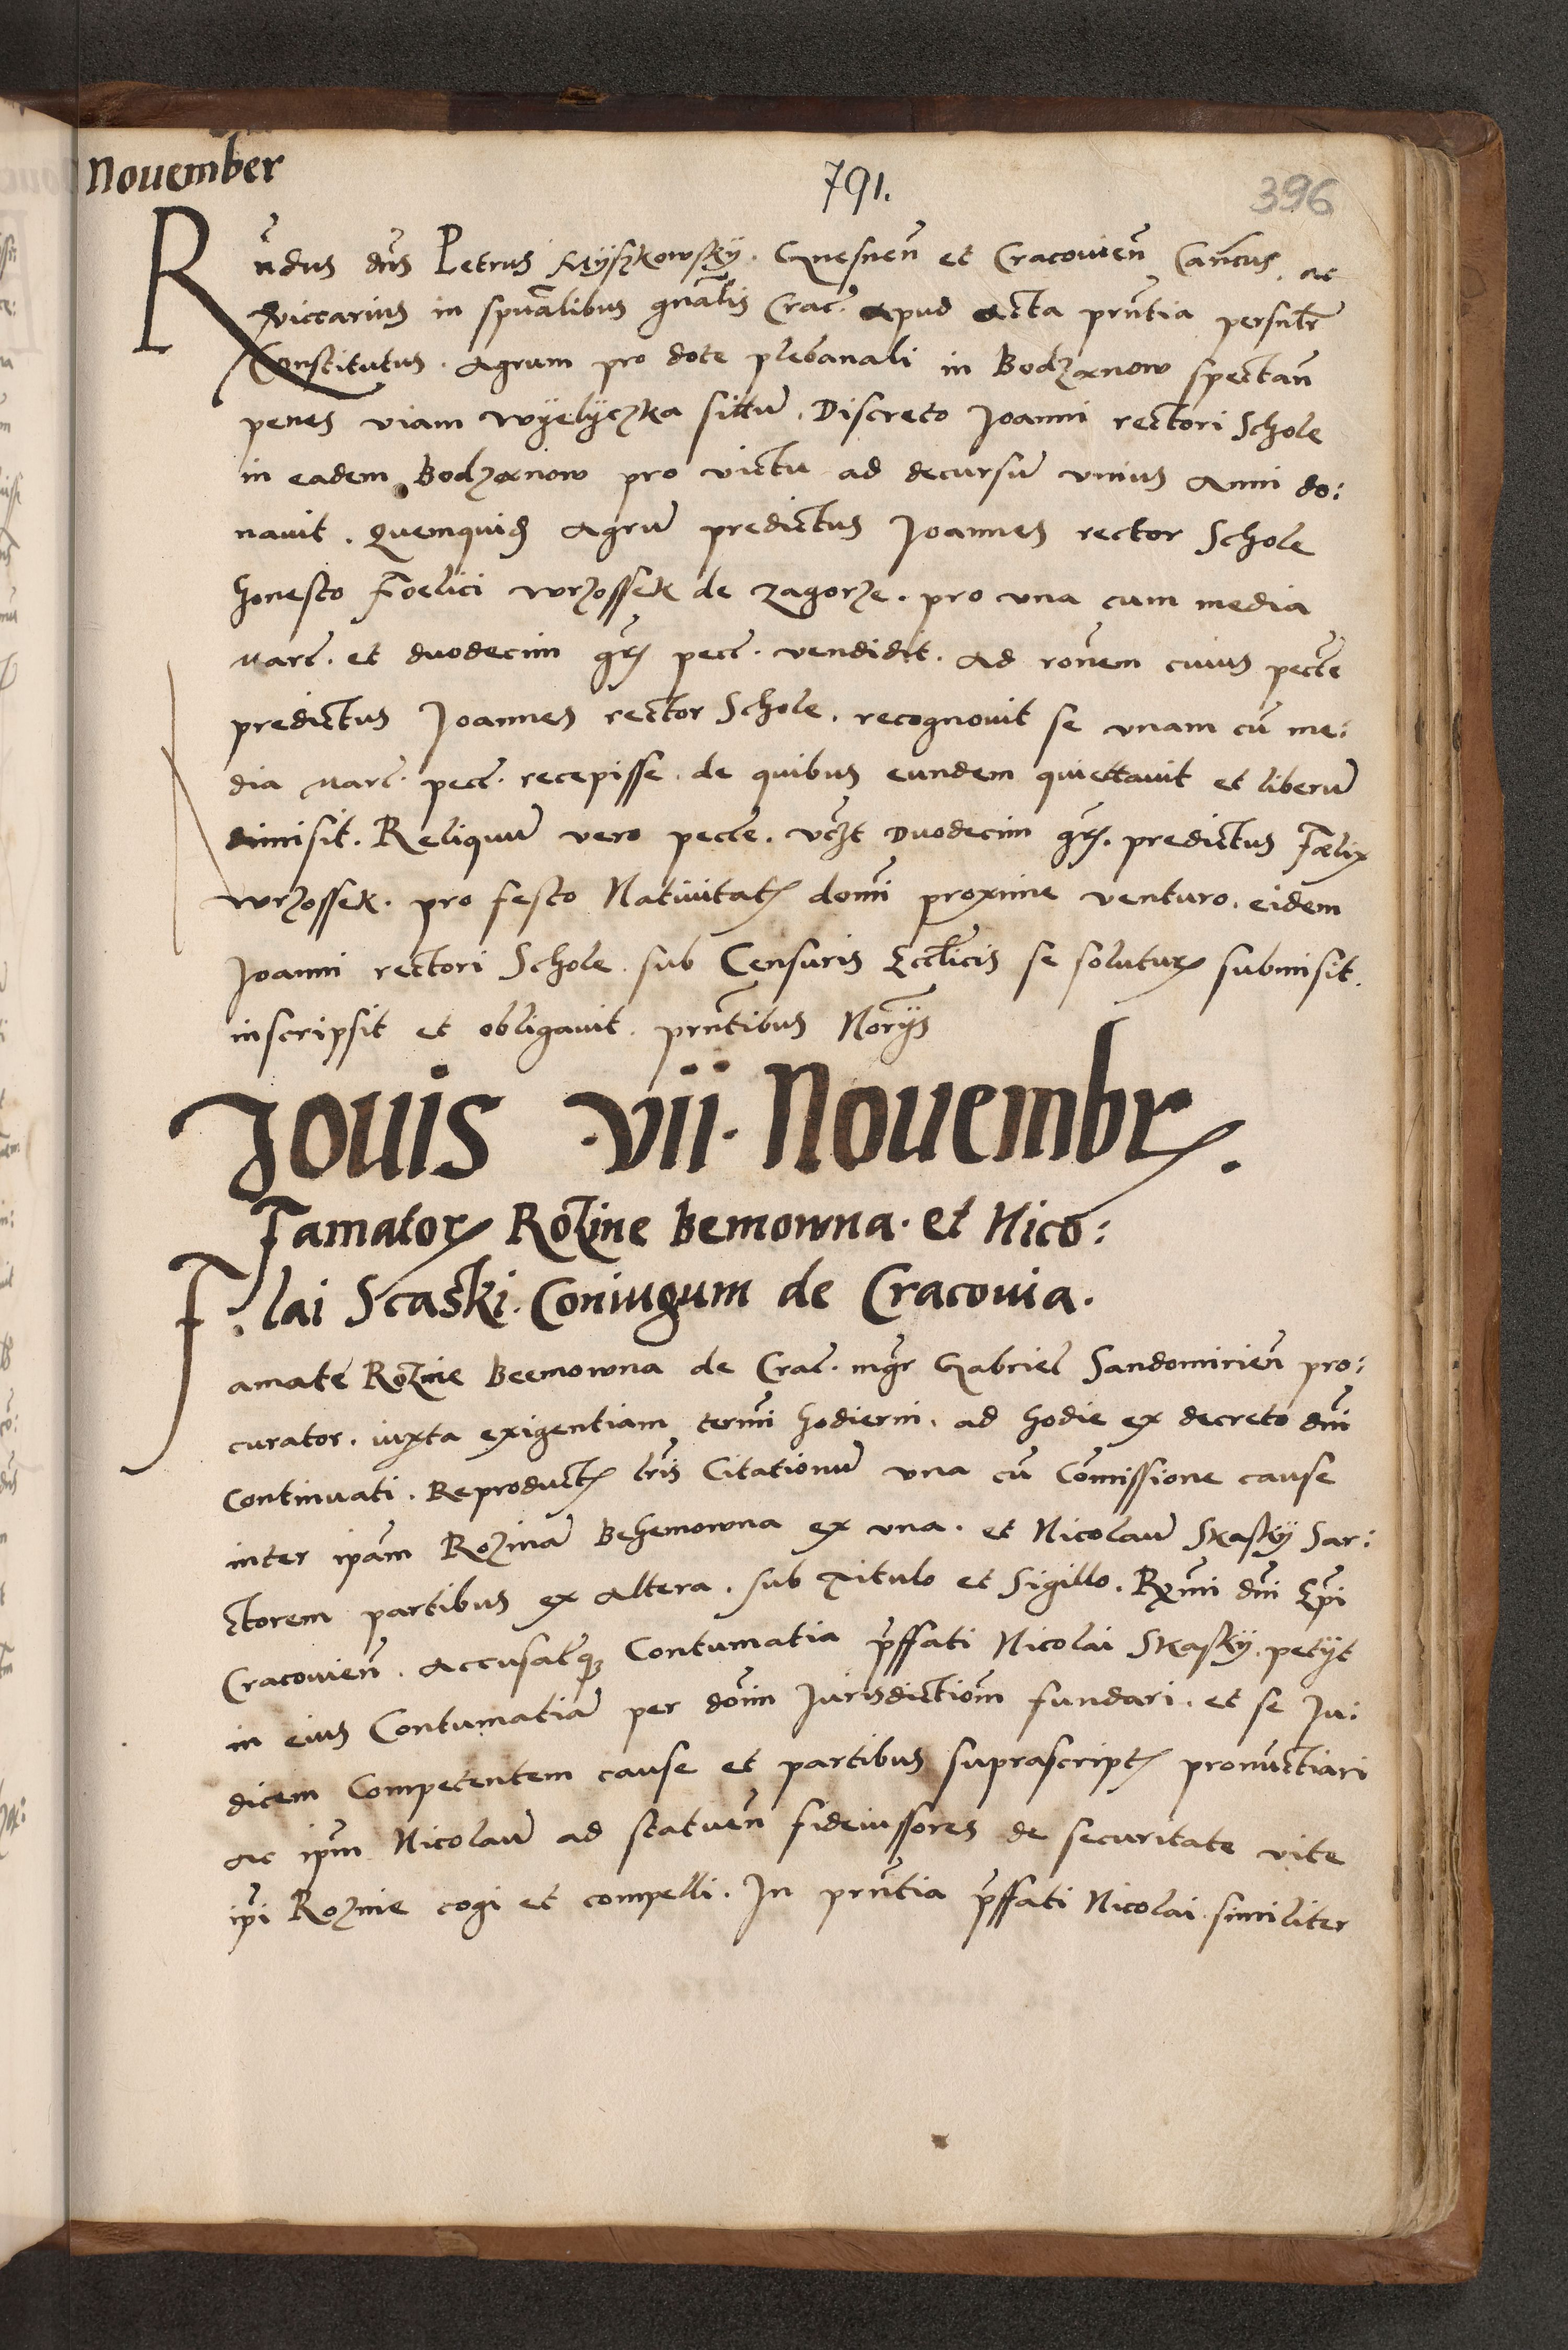 Nouember
791.
396
Rn̄dus dn̄s Petrus Myszkowsky. Gnesnen̄ et Cracouien̄ Can̄cus. ac
Viccarius in spūalibus gn̄alis Crac. apud acta prn̄tia persnlr̄
Constitutus. Agrum pro dote plebanali in Bodzanow spectan̄
penes viam Wyelyczka sittū. Discreto Joanni rectori Schole
in eadem Bodzanow pro victu ad decursū vnius Anni do:
nauit. Quemquid Agrū predictus Joannes rector Schole
honesto Foelici Wrzossek de Zagorze. pro vna cum media
Marc. et duodecim gr. pecc. vendidit. Ad ron̄em cuius pecc̄e
predictus Joannes rector Schole. recognouit se vnam cū me:
dia Marc. pecc. recepisse. de quibus eundem quiettauit et liberū
dimisit. Reliquū vero pecc̄e. vcz̄t Duodecim gr. predictus Fælix
Wrzossek. pro festo Natiuitatꝭ domī proxime venturo. eidem
Joanni rectori Schole. sub Censuris Eccl̄icis se soluturꝭ submisit.
inscripsit et obligauit. prn̄tibus Nor̄ijs
Jouis .vii. Nouembrꝭ.
Famatorꝭ Rozine Bemowna. et Nico:
lai Scaski. Coniugum de Cracouia.
Famate Rozine Beemowna de Crac. mḡr Gabriel Sandomirien̄ pro:
curator. iuxta exigentiam termī hodierni. ad hodie ex decreto dn̄i
Continuati. Reproductꝭ lr̄is Citationū vna cū Com̄issione cause
inter ip̄am Rozinā Behemowna ex vna. et Nicolaū Skasky Sar:
ctorem partibus ex altera. sub Titulo et Sigillo. Rx̄mi dn̄i Ep̄i
Cracouien̄. Accusatqꝫ Contumatia p̄ffati Nicolai Skasky. petijt
in eius Contumatiā per dom̄ Jurisdictiōm fundari. et se Ju:
dicem Competentem cause et partibus suprascriptꝭ pronūctiari
Ac ip̄m Nicolaū ad statuen̄ fideiussores de securitate vite
ip̄i Rozine cogi et compelli. In prn̄tia p̄ffati Nicolai. similiter